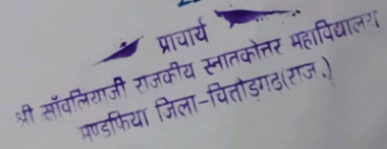 प्राचार्य
श्री साँवलियाजी राजकीय स्नातकोत्तर महाविद्यालय
मण्डफिया जिला-चित्तोड़गढ(राज.)